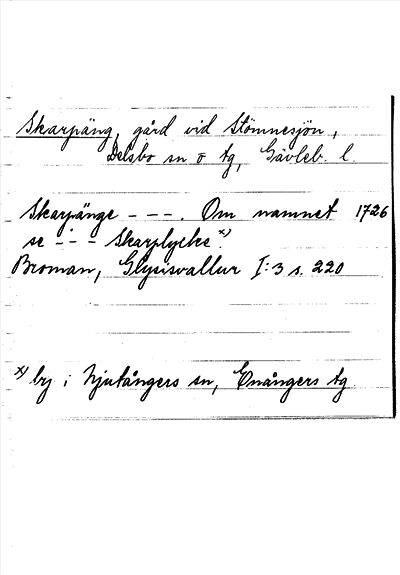 Skarpäng, gård vid Stömnesjön,
Delsbo sn o tg, Gävleb. l.
Skarpänge - - -. Om namnet 1726
se - - - Skarplycke x).
Broman, Glysisvallur I:3 s. 220
x) by i Njutångers sn, Enångers tg